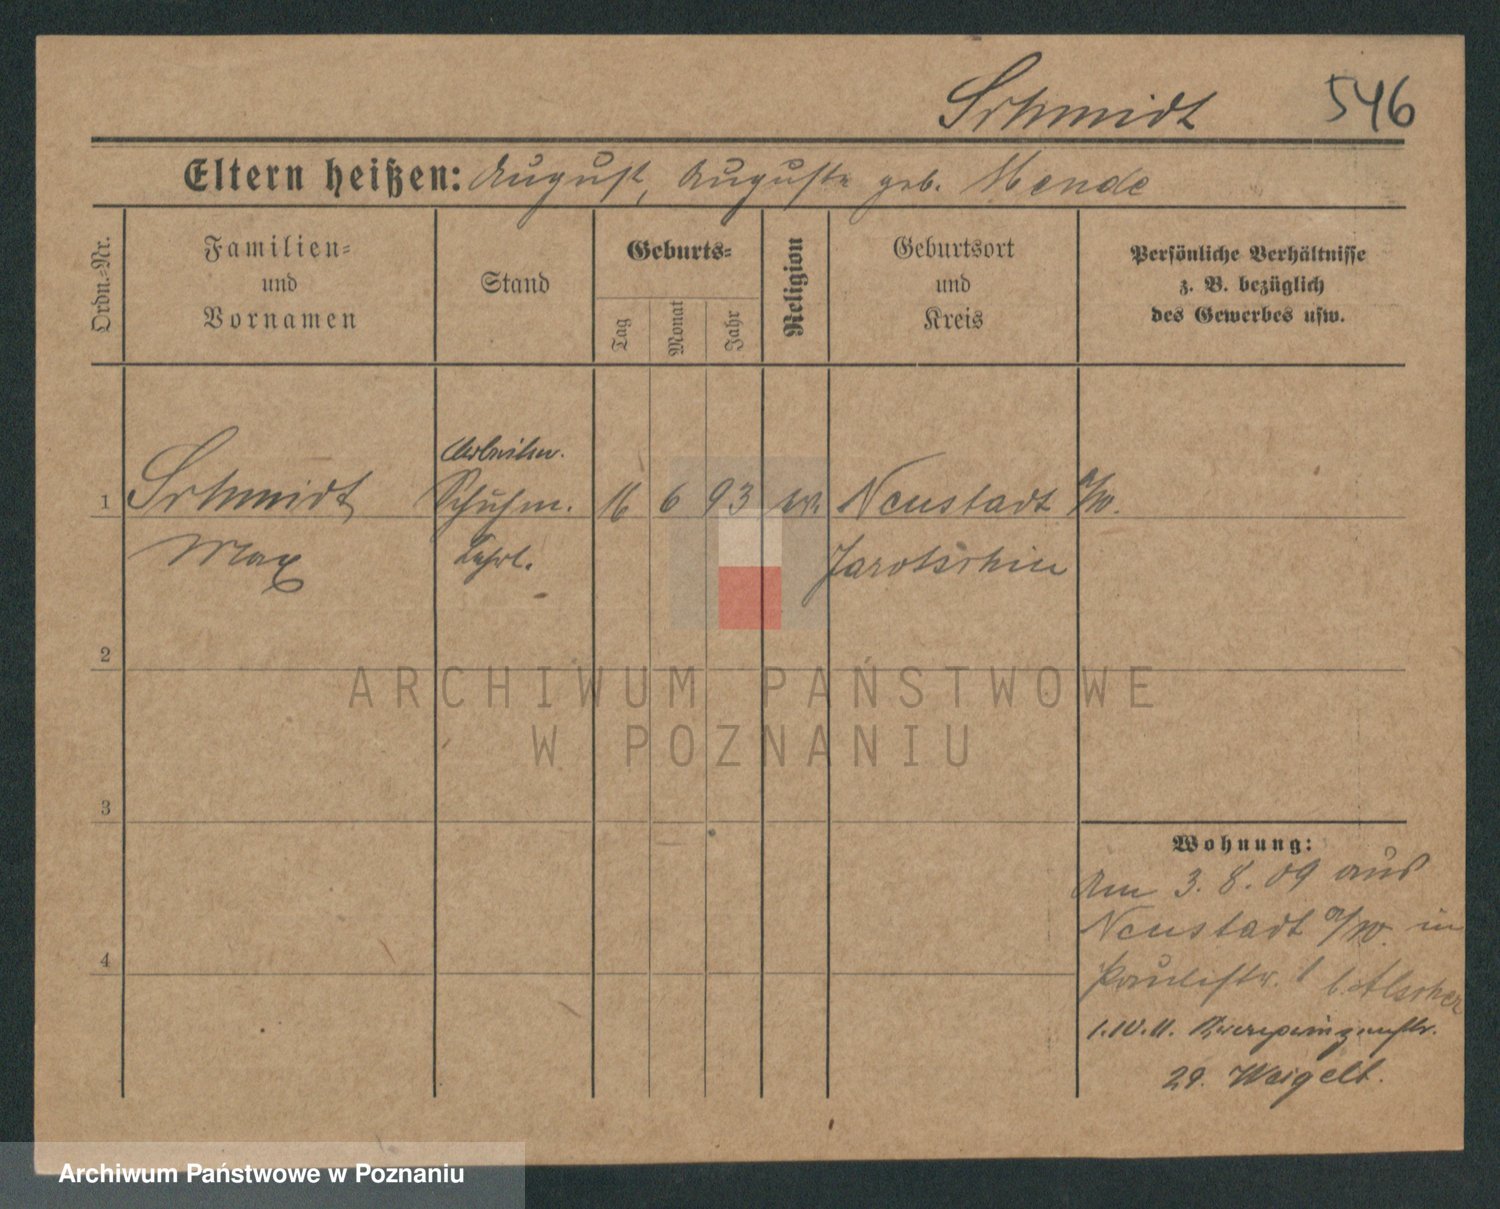 Schmidt 546
Eltern heißen: August, Auguste geb. Mende
Ordn.-Nr.
Familien-
und
Vornamen
Stand
Geburts-
Tag
Monat
Jahr
Religion
Geburtsort
und
Kreis
Persönliche Verhältnisse
z. B. bezüglich
des Gewerbes usw.
Arbeiter.
1 Schmidt Schuhm. 16 6 93 ev. Neustadt a/W.
Max Lehrl. Jarotschin
2
3
4
Wohnung:
Am 3. 8. 09 aus
Neustadt a/W. in
Paulistr. 1 b. Alscher
1.IV.11. Kronprinzenstr.
29. Weigelt.
ARCHIWUM PAŃSTWOWE
W POZNANIU
Archiwum Państwowe w Poznaniu